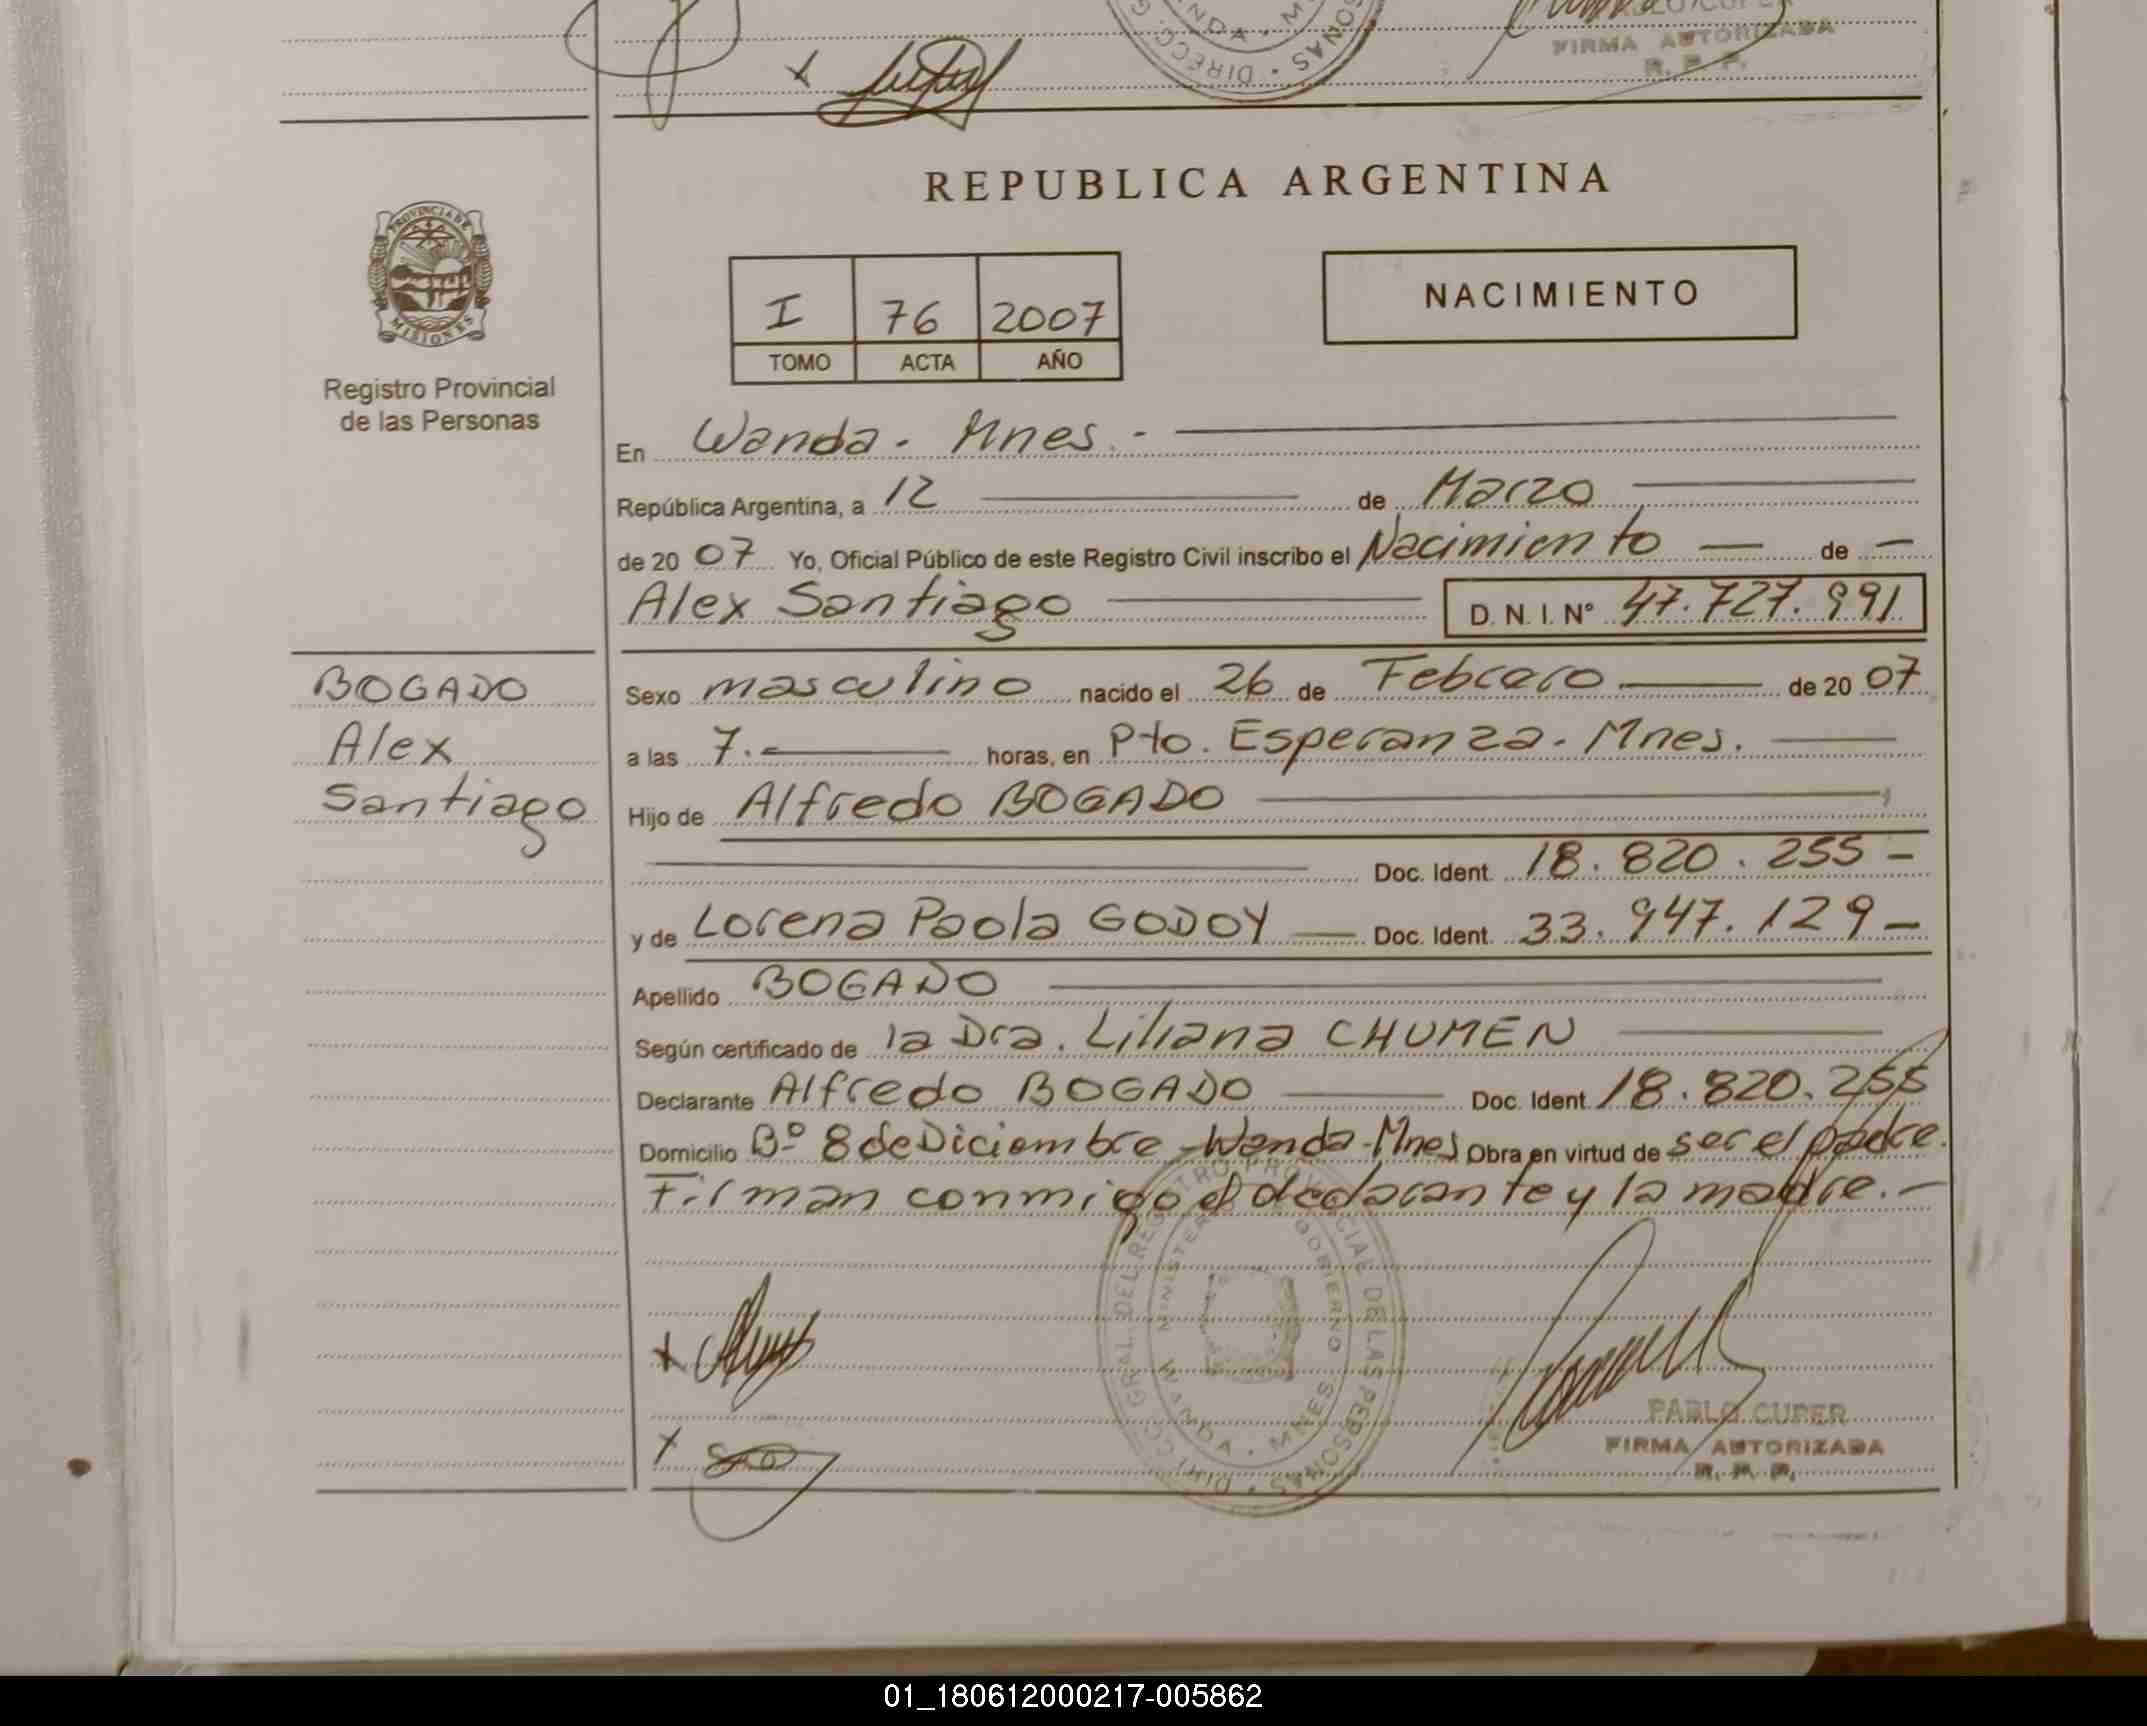 FIRMA AUTORIZADA
R. P. P.
REPUBLICA ARGENTINA
PROVINCIA DE
MISIONES
Registro Provincial
de las Personas
I 76 2007
TOMO ACTA AÑO
NACIMIENTO
En Wanda - Mnes. -
República Argentina, a 12 de Marzo
de 20 07 Yo, Oficial Público de este Registro Civil inscribo el Nacimiento — de —
Alex Santiago D. N. I. N° 47.727.991
BOGADO
Alex
Santiago
Sexo masculino nacido el 26 de Febrero de 20 07
a las 7.- horas, en Pto. Esperanza - Mnes.
Hijo de Alfredo BOGADO
Doc. Ident. 18.820.255 -
y de Lorena Paola GODOY — Doc. Ident. 33.947.129 -
Apellido BOGADO
Según certificado de la Dra. Liliana CHUMEN
Declarante Alfredo BOGADO Doc. Ident 18.820.255
Domicilio Bº 8 de Diciembre - Wanda - Mnes Obra en virtud de ser el padre.
Firman conmigo el declarante y la madre. -
DIRECC. GRAL. DEL REGISTRO PROVINCIAL DE LAS PERSONAS
MINISTERIO DE GOBIERNO
WANDA - MNES
PABLO CUPER
FIRMA AUTORIZADA
R. P. P.
01_180612000217-005862